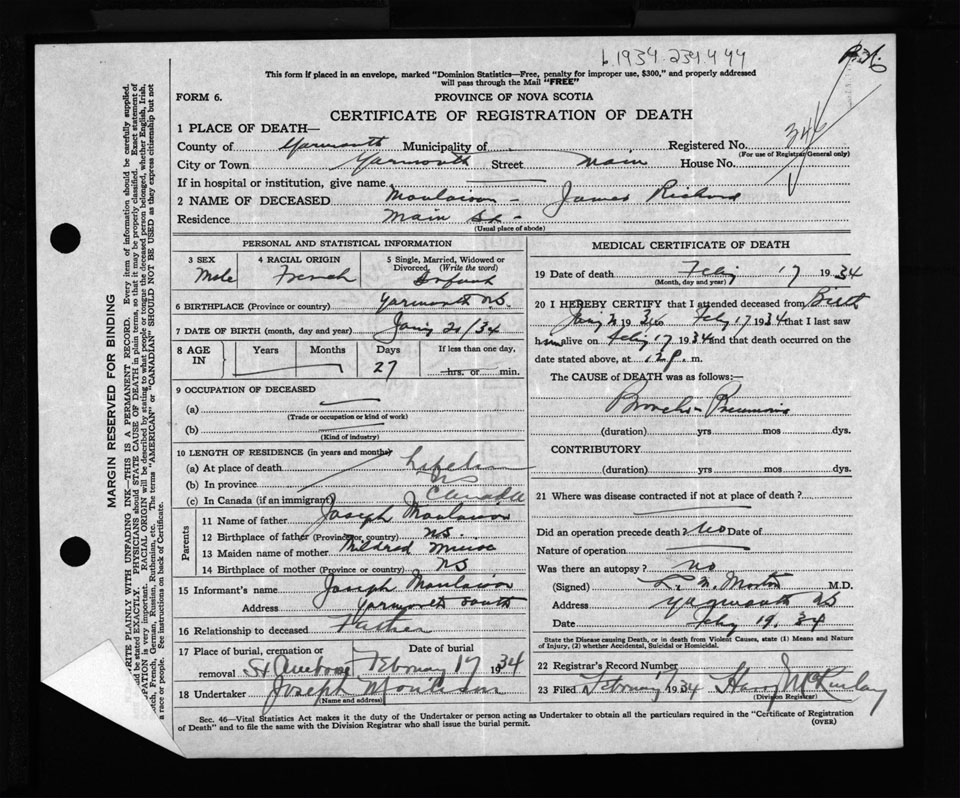 b.1934.234.444
This form if placed in an envelope, marked "Dominion Statistics—Free, penalty for improper use, $300," and properly addressed
will pass through the Mail "FREE"
FORM 6.
PROVINCE OF NOVA SCOTIA
CERTIFICATE OF REGISTRATION OF DEATH
1 PLACE OF DEATH—
County of Yarmouth Municipality of Registered No. 346
(For use of Registrar General only)
City or Town Yarmouth Street Main House No.
If in hospital or institution, give name
2 NAME OF DECEASED Moulaison - James Richard
Residence Main St -
(Usual place of abode)
PERSONAL AND STATISTICAL INFORMATION
3 SEX Male
4 RACIAL ORIGIN French
5 Single, Married, Widowed or Divorced (Write the word) Infant
6 BIRTHPLACE (Province or country) Yarmouth NS.
7 DATE OF BIRTH (month, day and year) Jany 21/34
8 AGE IN Years Months Days 27 If less than one day, hrs. or min.
9 OCCUPATION OF DECEASED
(a)
(Trade or occupation or kind of work)
(b)
(Kind of industry)
10 LENGTH OF RESIDENCE (in years and months)
(a) At place of death Lifetime
(b) In province NS
(c) In Canada (if an immigrant) Canada
Parents
11 Name of father Joseph Moulaison
12 Birthplace of father (Province or country) NS.
13 Maiden name of mother Mildred Muise
14 Birthplace of mother (Province or country) NS
15 Informant's name Joseph Moulaison
Address Yarmouth South
16 Relationship to deceased Father
17 Place of burial, cremation or removal St Ambrose Date of burial February 17 1934
18 Undertaker Joseph Moulison
(Name and address)
MEDICAL CERTIFICATE OF DEATH
19 Date of death Feby 17 1934
(Month, day and year)
20 I HEREBY CERTIFY that I attended deceased from Birth
Jany 21 1934 to Feby 17 1934 that I last saw
him alive on Feby 17 1934 and that death occurred on the
date stated above, at 12 p. m.
The CAUSE of DEATH was as follows:—
Broncho-Pneumonia
(duration) yrs mos dys.
CONTRIBUTORY
(duration) yrs mos dys.
21 Where was disease contracted if not at place of death?
Did an operation precede death? No Date of
Nature of operation
Was there an autopsy? no
(Signed) L. M. Morton M.D.
Address Yarmouth NS
Date Feby 19. 34
State the Disease causing Death, or in death from Violent Causes, state (1) Means and Nature
of Injury, (2) whether Accidental, Suicidal or Homicidal.
22 Registrar's Record Number
23 Filed February 1934 Harry McKinlay
(Division Registrar)
Sec. 46—Vital Statistics Act makes it the duty of the Undertaker or person acting as Undertaker to obtain all the particulars required in the "Certificate of Registration
of Death" and to file the same with the Division Registrar who shall issue the burial permit.
(OVER)
MARGIN RESERVED FOR BINDING
WRITE PLAINLY WITH UNFADING INK—THIS IS A PERMANENT RECORD. Every item of information should be carefully supplied.
be stated EXACTLY. PHYSICIANS should STATE CAUSE OF DEATH in plain terms, so that it may be properly classified. Exact statement of
is very important. RACIAL ORIGIN will be described by stating to what people or tongue the deceased person belonged, whether English, Irish,
French, German, Russian, Ruthenian, etc. The terms "AMERICAN" or "CANADIAN" SHOULD NOT BE USED as they express citizenship but not
a race or people. See instructions on back of Certificate.